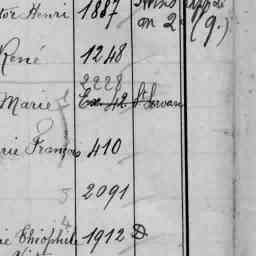 tor Henri 1887
m 2 (9.)
René 1248
2228
Marie Ex. 42 St Servan
rie François 410
2091
ie Théophile 1912 D